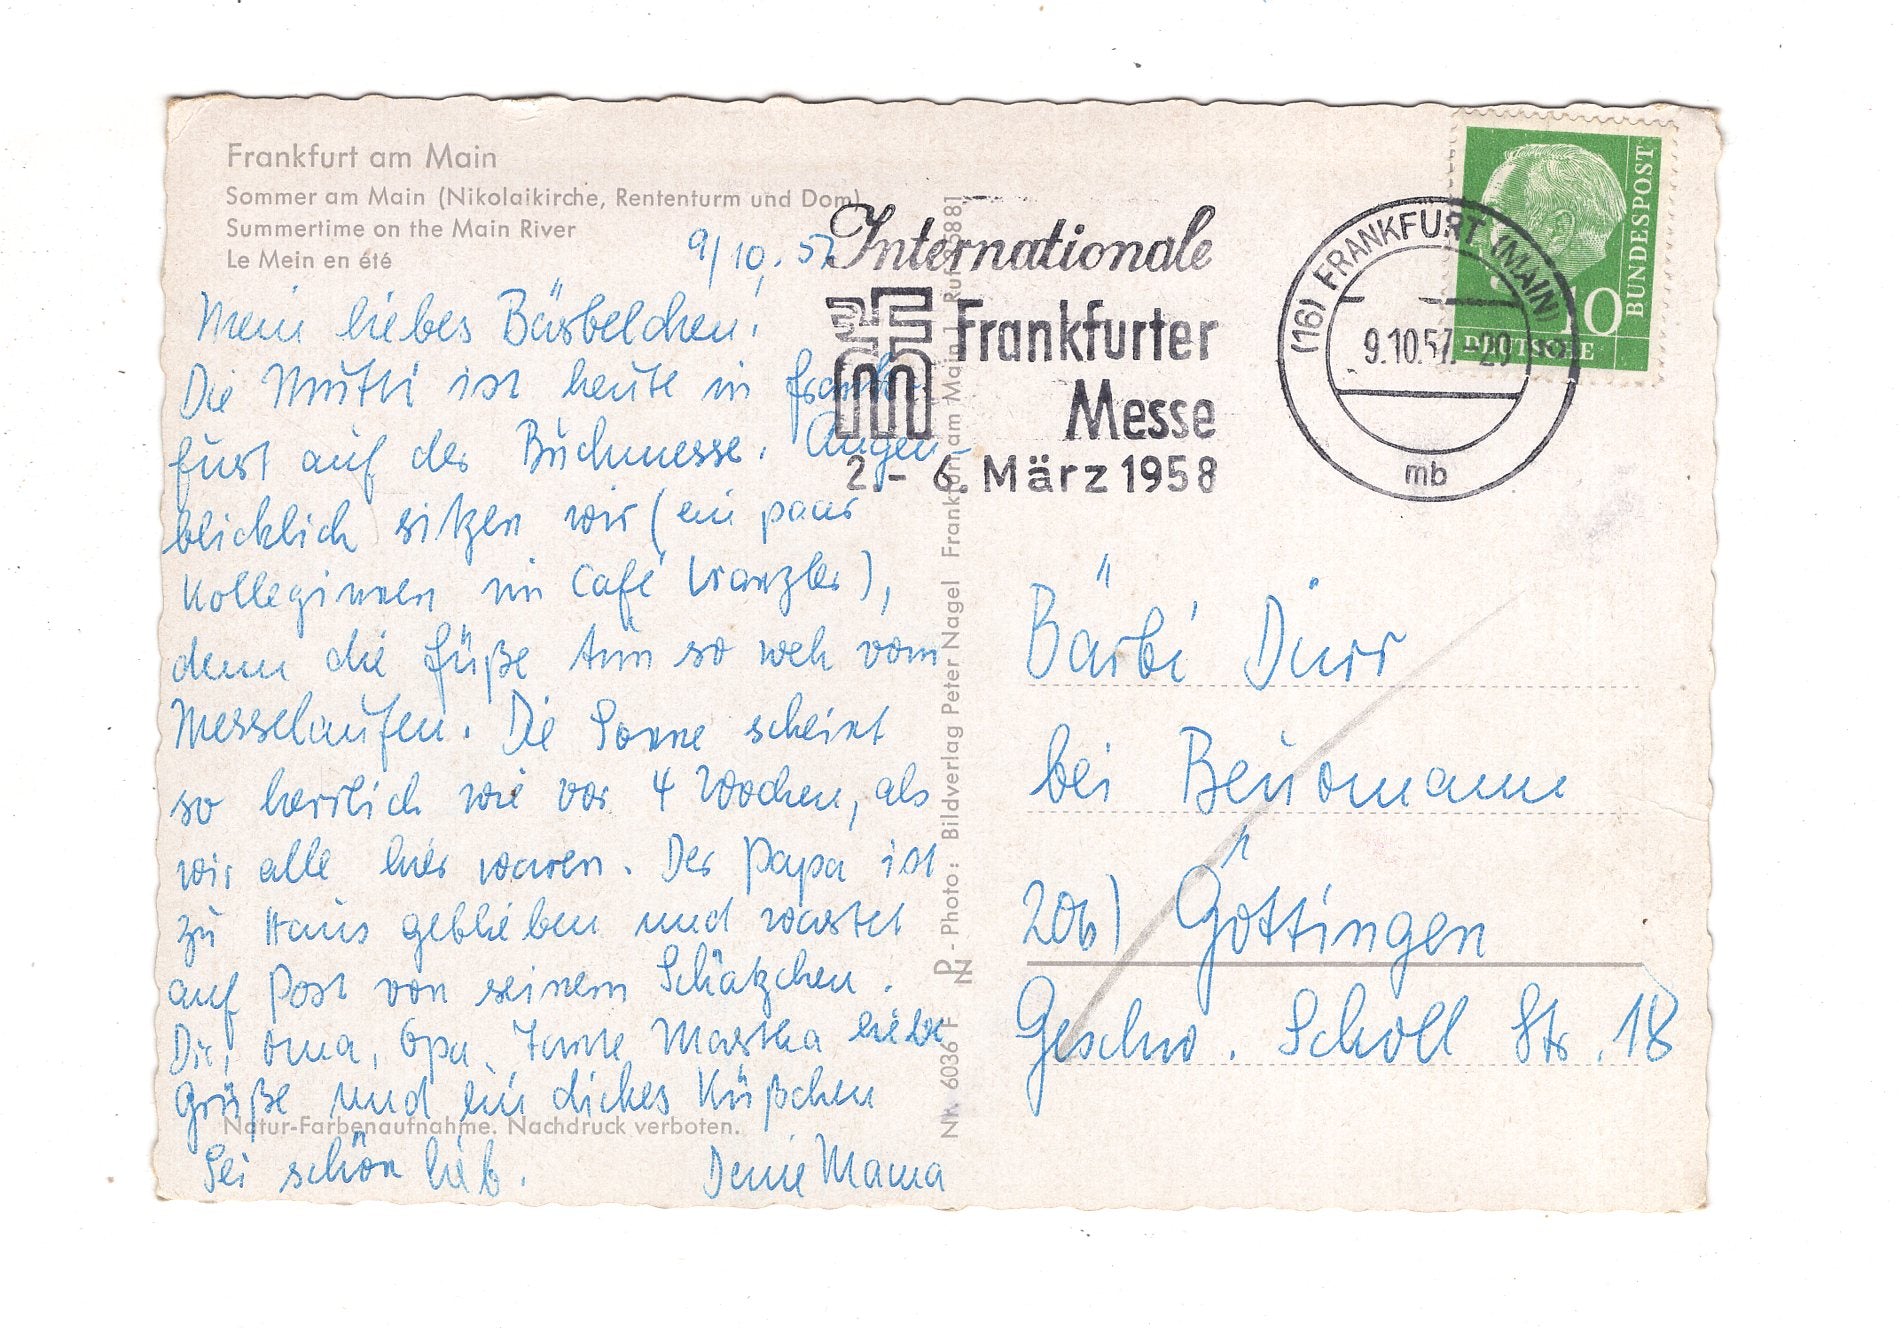 Frankfurt am Main
Sommer am Main (Nikolaikirche, Rententurm und Dom)
Summertime on the Main River
Le Mein en été
9/10. 57
Mein liebes Bärbelchen!
Die Mutti ist heute in Frank-
furt auf der Buchmesse. Augen-
blicklich sitzen wir (ein paar
Kolleginnen im Café Kranzler),
denn die Füße tun so weh vom
Messelaufen. Die Sonne scheint
so herrlich wie vor 4 Wochen, als
wir alle hier waren. Der Papa ist
zu Haus geblieben und wartet
auf Post von seinem Schätzchen.
Dir, Oma, Opa, Tante Martha liebe
Grüße und ein dickes Küßchen
Natur-Farbenaufnahme. Nachdruck verboten.
Sei schön lieb. Deine Mama
Nr. 6036 F
P - Photo: Bildverlag Peter Nagel Frankfurt am Main
Internationale
Frankfurter
Messe
2.- 6. März 1958
(16) FRANKFURT (MAIN)
9.10.57.-20
mb
DEUTSCHE
BUNDESPOST
10
Bärbi Dürr
bei
20b) Göttingen
Geschw. Scholl Str. 18